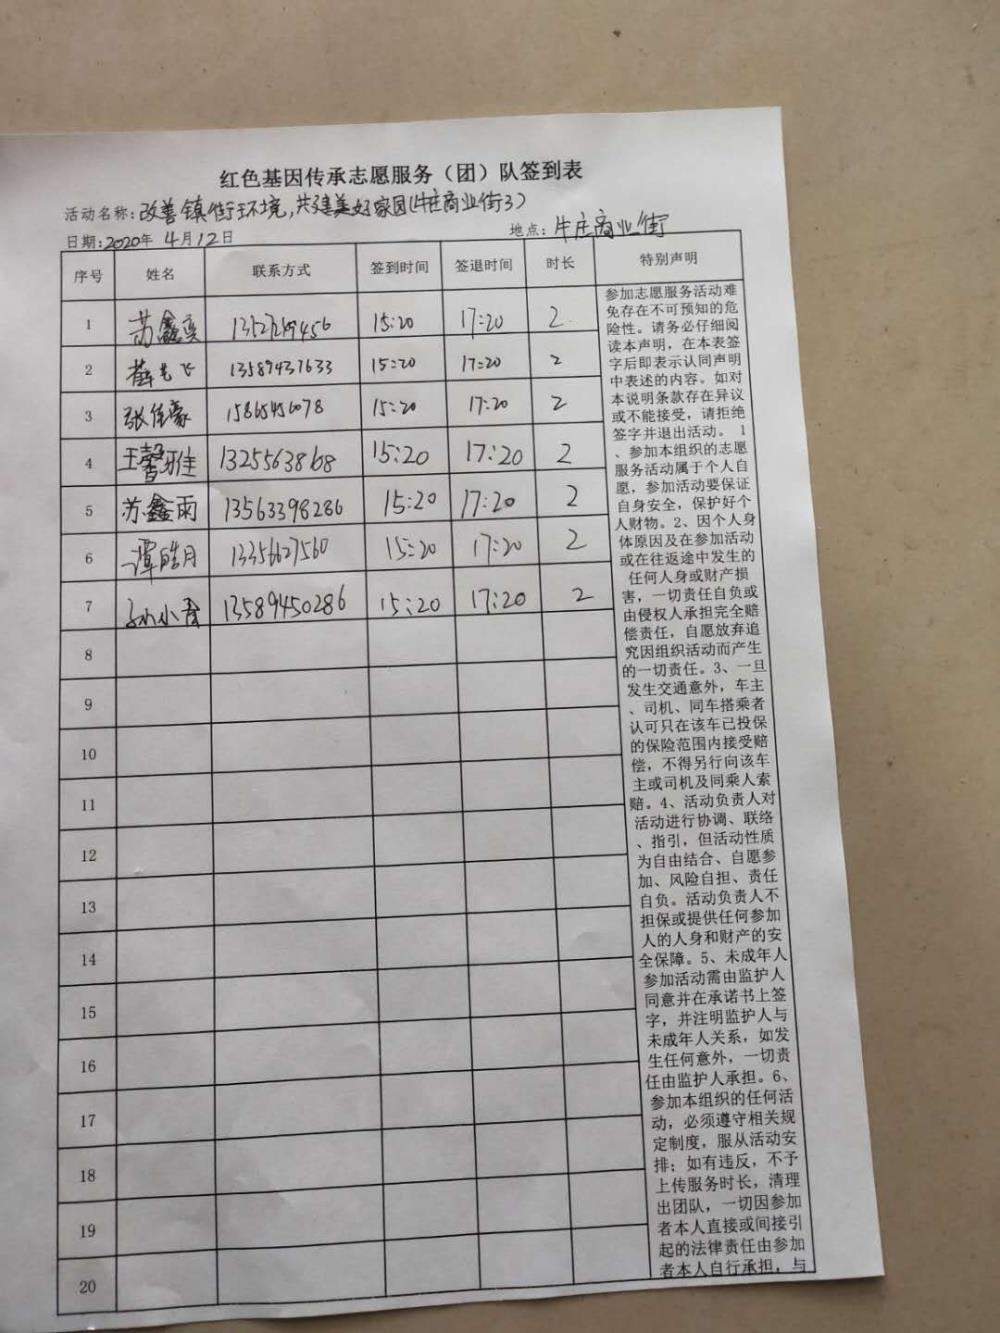 红色基因传承志愿服务（团）队签到表
活动名称：改善镇街环境，共建美好家园（牛庄商业街3）
日期：2020年 4月12日 地点：牛庄商业街
序号 姓名 联系方式 签到时间 签退时间 时长 特别声明
1 苏鑫 15:20 17:20 2
2 薛 飞 13589437633 15:20 17:20 2
3 张佳豪 15865456078 15:20 17:20 2
4 王馨雅 13255638868 15:20 17:20 2
5 苏鑫雨 13563398286 15:20 17:20 2
6 谭皓月 13356627560 15:20 17:20 2
7 孙小 13589450286 15:20 17:20 2
8
9
10
11
12
13
14
15
16
17
18
19
20
参加志愿服务活动难
免存在不可预知的危
险性。请务必仔细阅
读本声明，在本表签
字后即表示认同声明
中表述的内容。如对
本说明条款存在异议
或不能接受，请拒绝
签字并退出活动。 1
、参加本组织的志愿
服务活动属于个人自
愿，参加活动要保证
自身安全，保护好个
人财物。2、因个人身
体原因及在参加活动
或在往返途中发生的
任何人身或财产损
害，一切责任自负或
由侵权人承担完全赔
偿责任，自愿放弃追
究因组织活动而产生
的一切责任。3、一旦
发生交通意外，车主
、司机、同车搭乘者
认可只在该车已投保
的保险范围内接受赔
偿，不得另行向该车
主或司机及同乘人索
赔。4、活动负责人对
活动进行协调、联络
、指引，但活动性质
为自由结合、自愿参
加、风险自担、责任
自负。活动负责人不
担保或提供任何参加
人的人身和财产的安
全保障。5、未成年人
参加活动需由监护人
同意并在承诺书上签
字，并注明监护人与
未成年人关系，如发
生任何意外，一切责
任由监护人承担。6、
参加本组织的任何活
动，必须遵守相关规
定制度，服从活动安
排；如有违反，不予
上传服务时长，清理
出团队，一切因参加
者本人直接或间接引
起的法律责任由参加
者本人自行承担，与